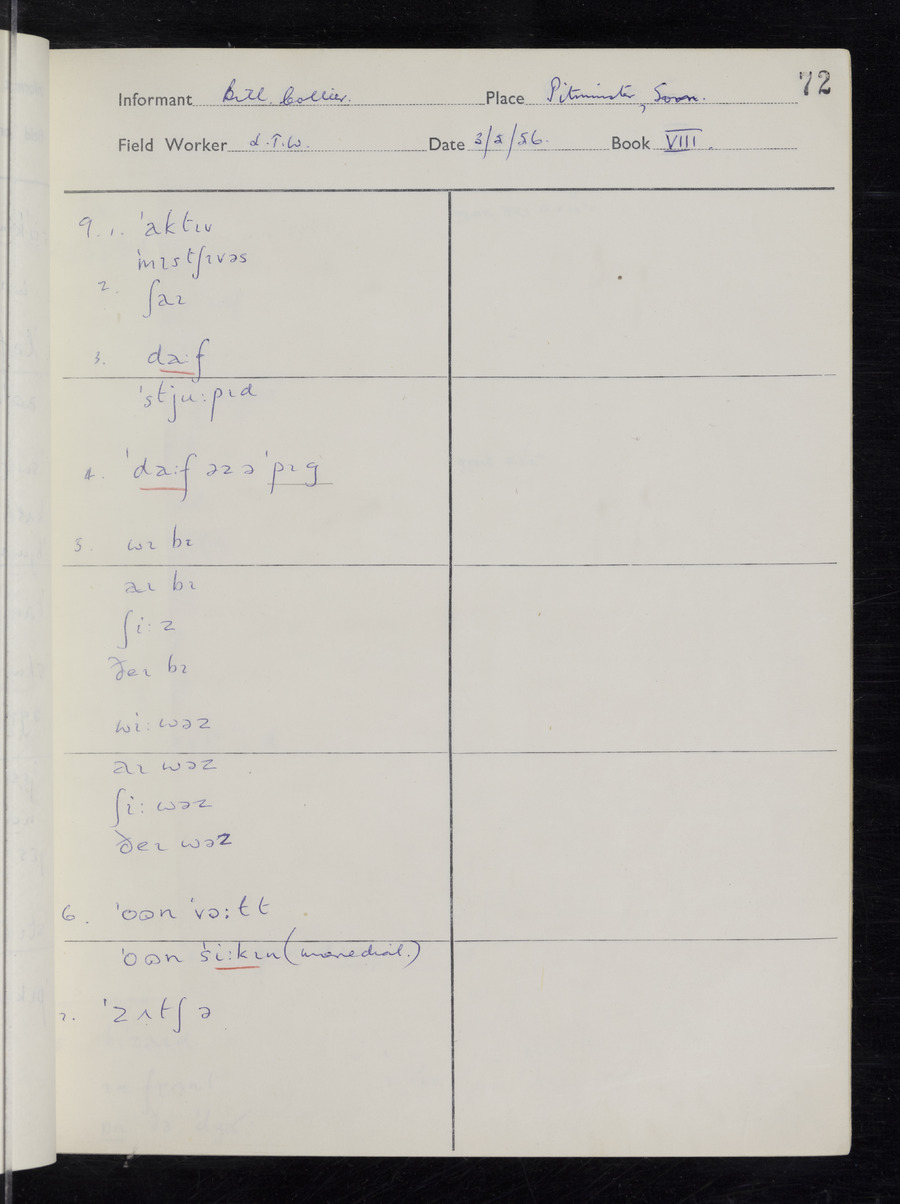 72
Informant Bill Collier. Place Pitminster, Som.
Field Worker S.T.W. Date 3/2/56. Book VIII.
9. 1. ˈaktɪv
ˈmɪstʃɪvəs
2. ʃaɪ
3. da:f
ˈstju:pɪd
4. ˈda:f əz ə ˈpɪg
5. wɪ bɪ
aɪ bɪ
ʃi: z
ðeɪ bɪ
wi: wəz
aɪ wəz
ʃi: wəz
ðeɪ wəz
6. ˈoən ˈvə:tt
ˈoən ˈsi:kɪn (more dial.)
7. ˈzʌtʃ ə